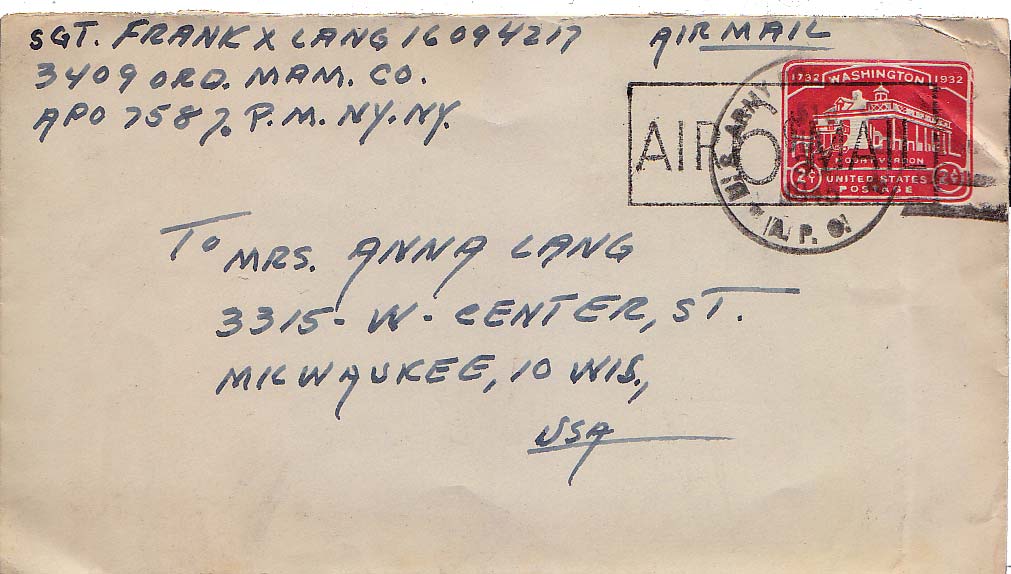 SGT. FRANK X LANG 16094217 AIR MAIL
3409 ORD. MAM. CO.
APO 758 %. P.M. NY. NY.
1732 WASHINGTON 1932
AIR MAIL
U.S. ARMY
MOUNT VERNON
2¢ UNITED STATES 2¢
POSTAGE
A. P. O.
To MRS. ANNA LANG
3315-W-CENTER, ST.
MILWAUKEE, 10 WIS.,
USA